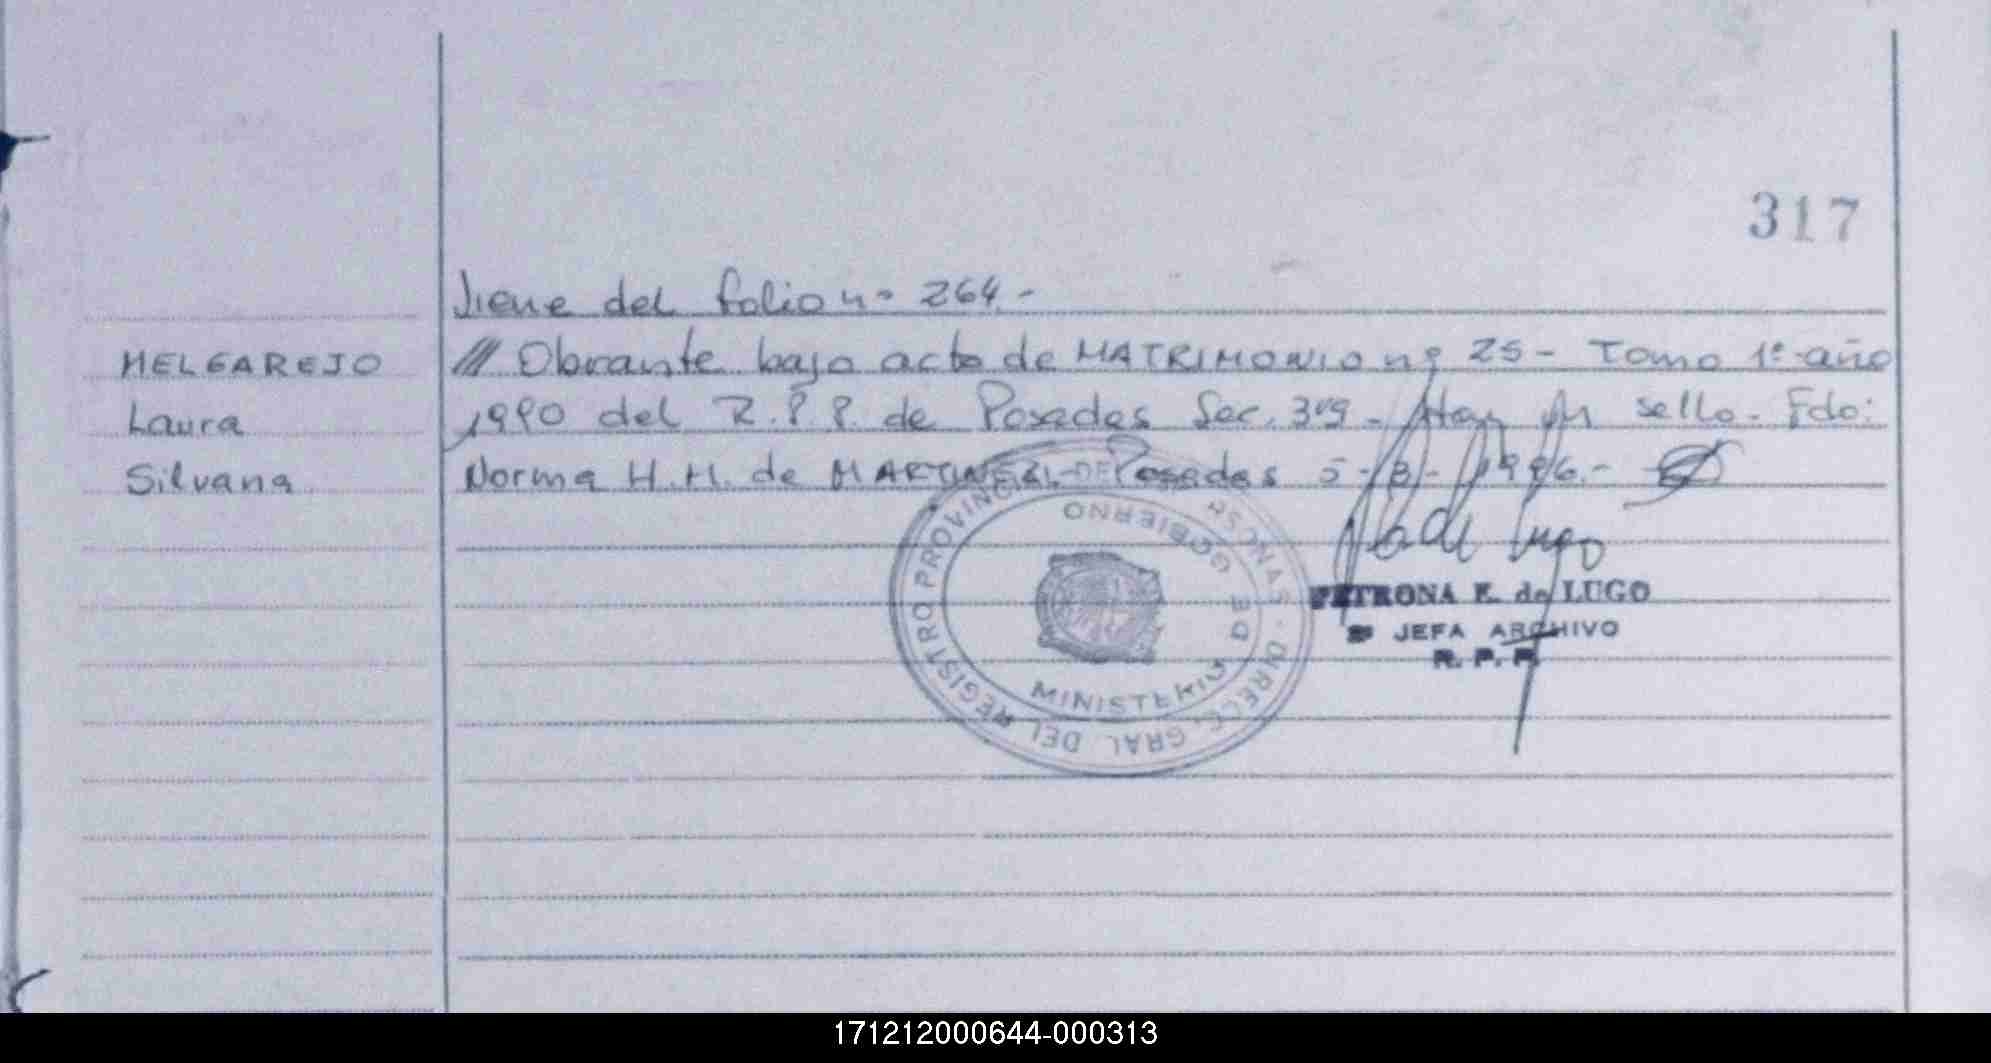 317
Viene del folio nº 264.-
MELGAREJO
Laura
Silvana
/// Obrante bajo acta de MATRIMONIO nº 25 - Tomo 1º - año
1990 del R.P.P. de Posadas Sec. 3ra - Hay un sello. Fdo:
Norma H.M. de MARTINEZ.- Posadas 5-8-1996.-
PETRONA E. de LUGO
JEFA ARCHIVO
R. P. P.
DIRECC. GRAL DEL REGISTRO PROVINCIAL DE
MINISTERIO DE GOBIERNO
171212000644-000313